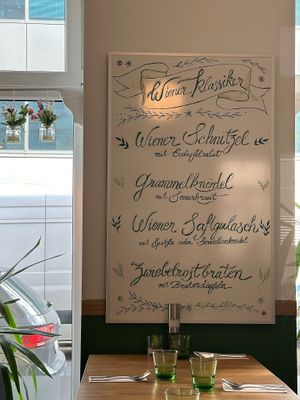 Wiener Klassiker
Wiener Schnitzel
mit Erdäpfelsalat
Grammelknödel
mit Sauerkraut
Wiener Saftgulasch
mit Spätzle oder Semmelknödel
Zwiebelrostbraten
mit Braterdäpfeln